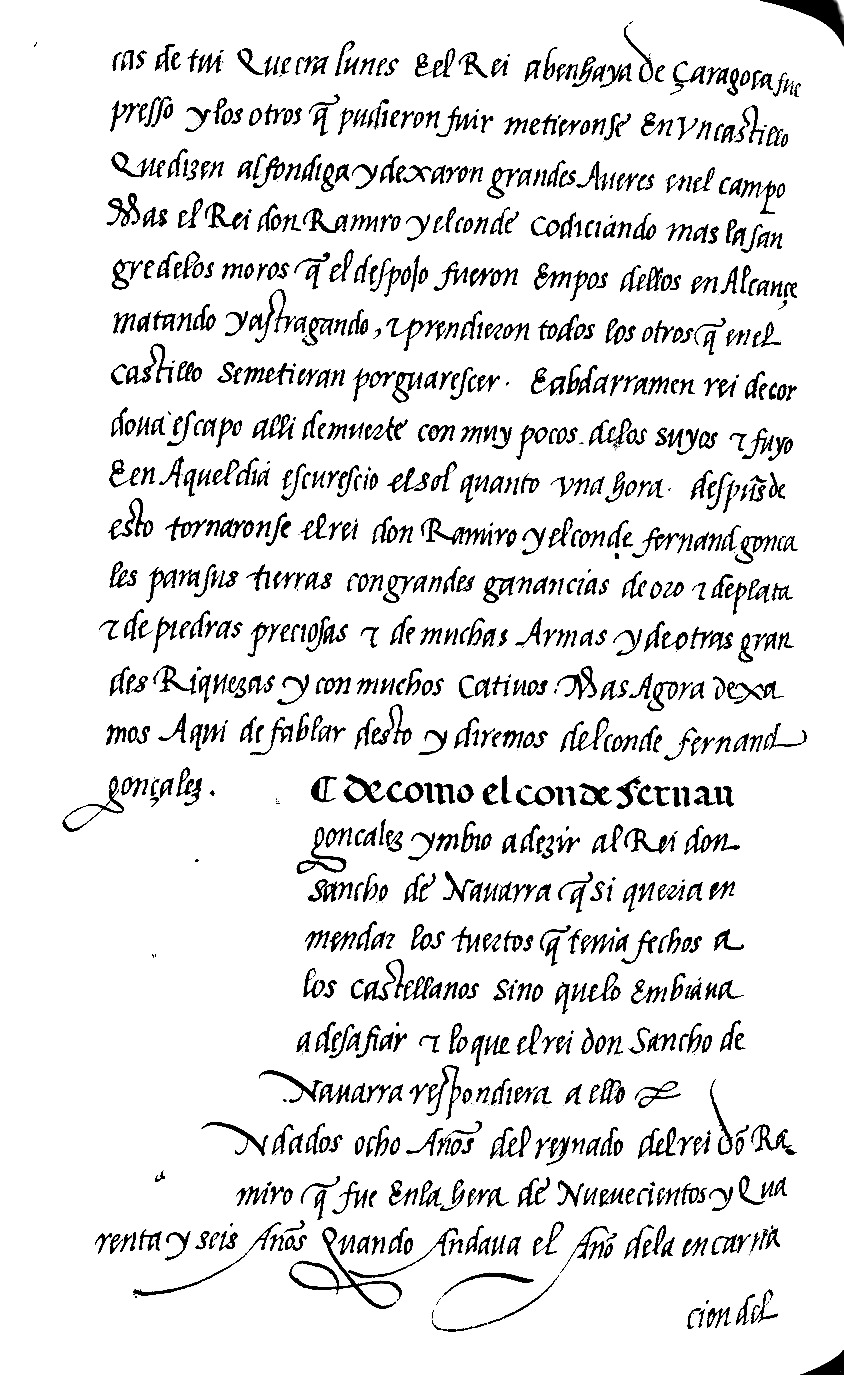 cas de tui Que era lunes E el Rei abenhaya de Çaragoça fue
presso y los otros q̃ pudieron fuir metieronse En Vn castillo
Que dizen alfondiga y dexaron grandes Aueres en el campo
Mas el Rei don Ramiro y el conde Codiciando mas la san
gre de los moros q̃ el despojo fueron Empos dellos en Alcançe
matando y astragando, τ prendieron todos los otros q̃ en el
Castillo se metieran por guarescer. E abdarramen rei de cor
doua escapo alli de muerte con muy pocos de los suyos τ fuyo
E en Aquel dia escurescio el sol quanto vna hora. despũs de
esto tornaronse el rei don Ramiro y el conde fernand gonca
les para sus tierras con grandes ganancias de oro τ de plata
τ de piedras preciosas τ de muchas Armas y de otras gran
des Riquezas y con muchos Catiuos. Mas Agora dexa
mos Aqui de fablar desto y diremos del conde fernand
gonçalez.
¶ de como el conde Fernan
goncalez ymbio a dezir al Rei don
Sancho de Nauarra q̃ si queria en
mendar los tuertos q̃ tenia fechos a
los Castellanos sino que lo Embiaua
a desafiar τ lo que el rei don Sancho de
Nauarra respondiera a ello
Ndados ocho Años del reynado del rei dõ Ra
miro q̃ fue En la hera de Nueuecientos y Qua
renta y seis Años Quando Andaua el Año de la encarna
cion del